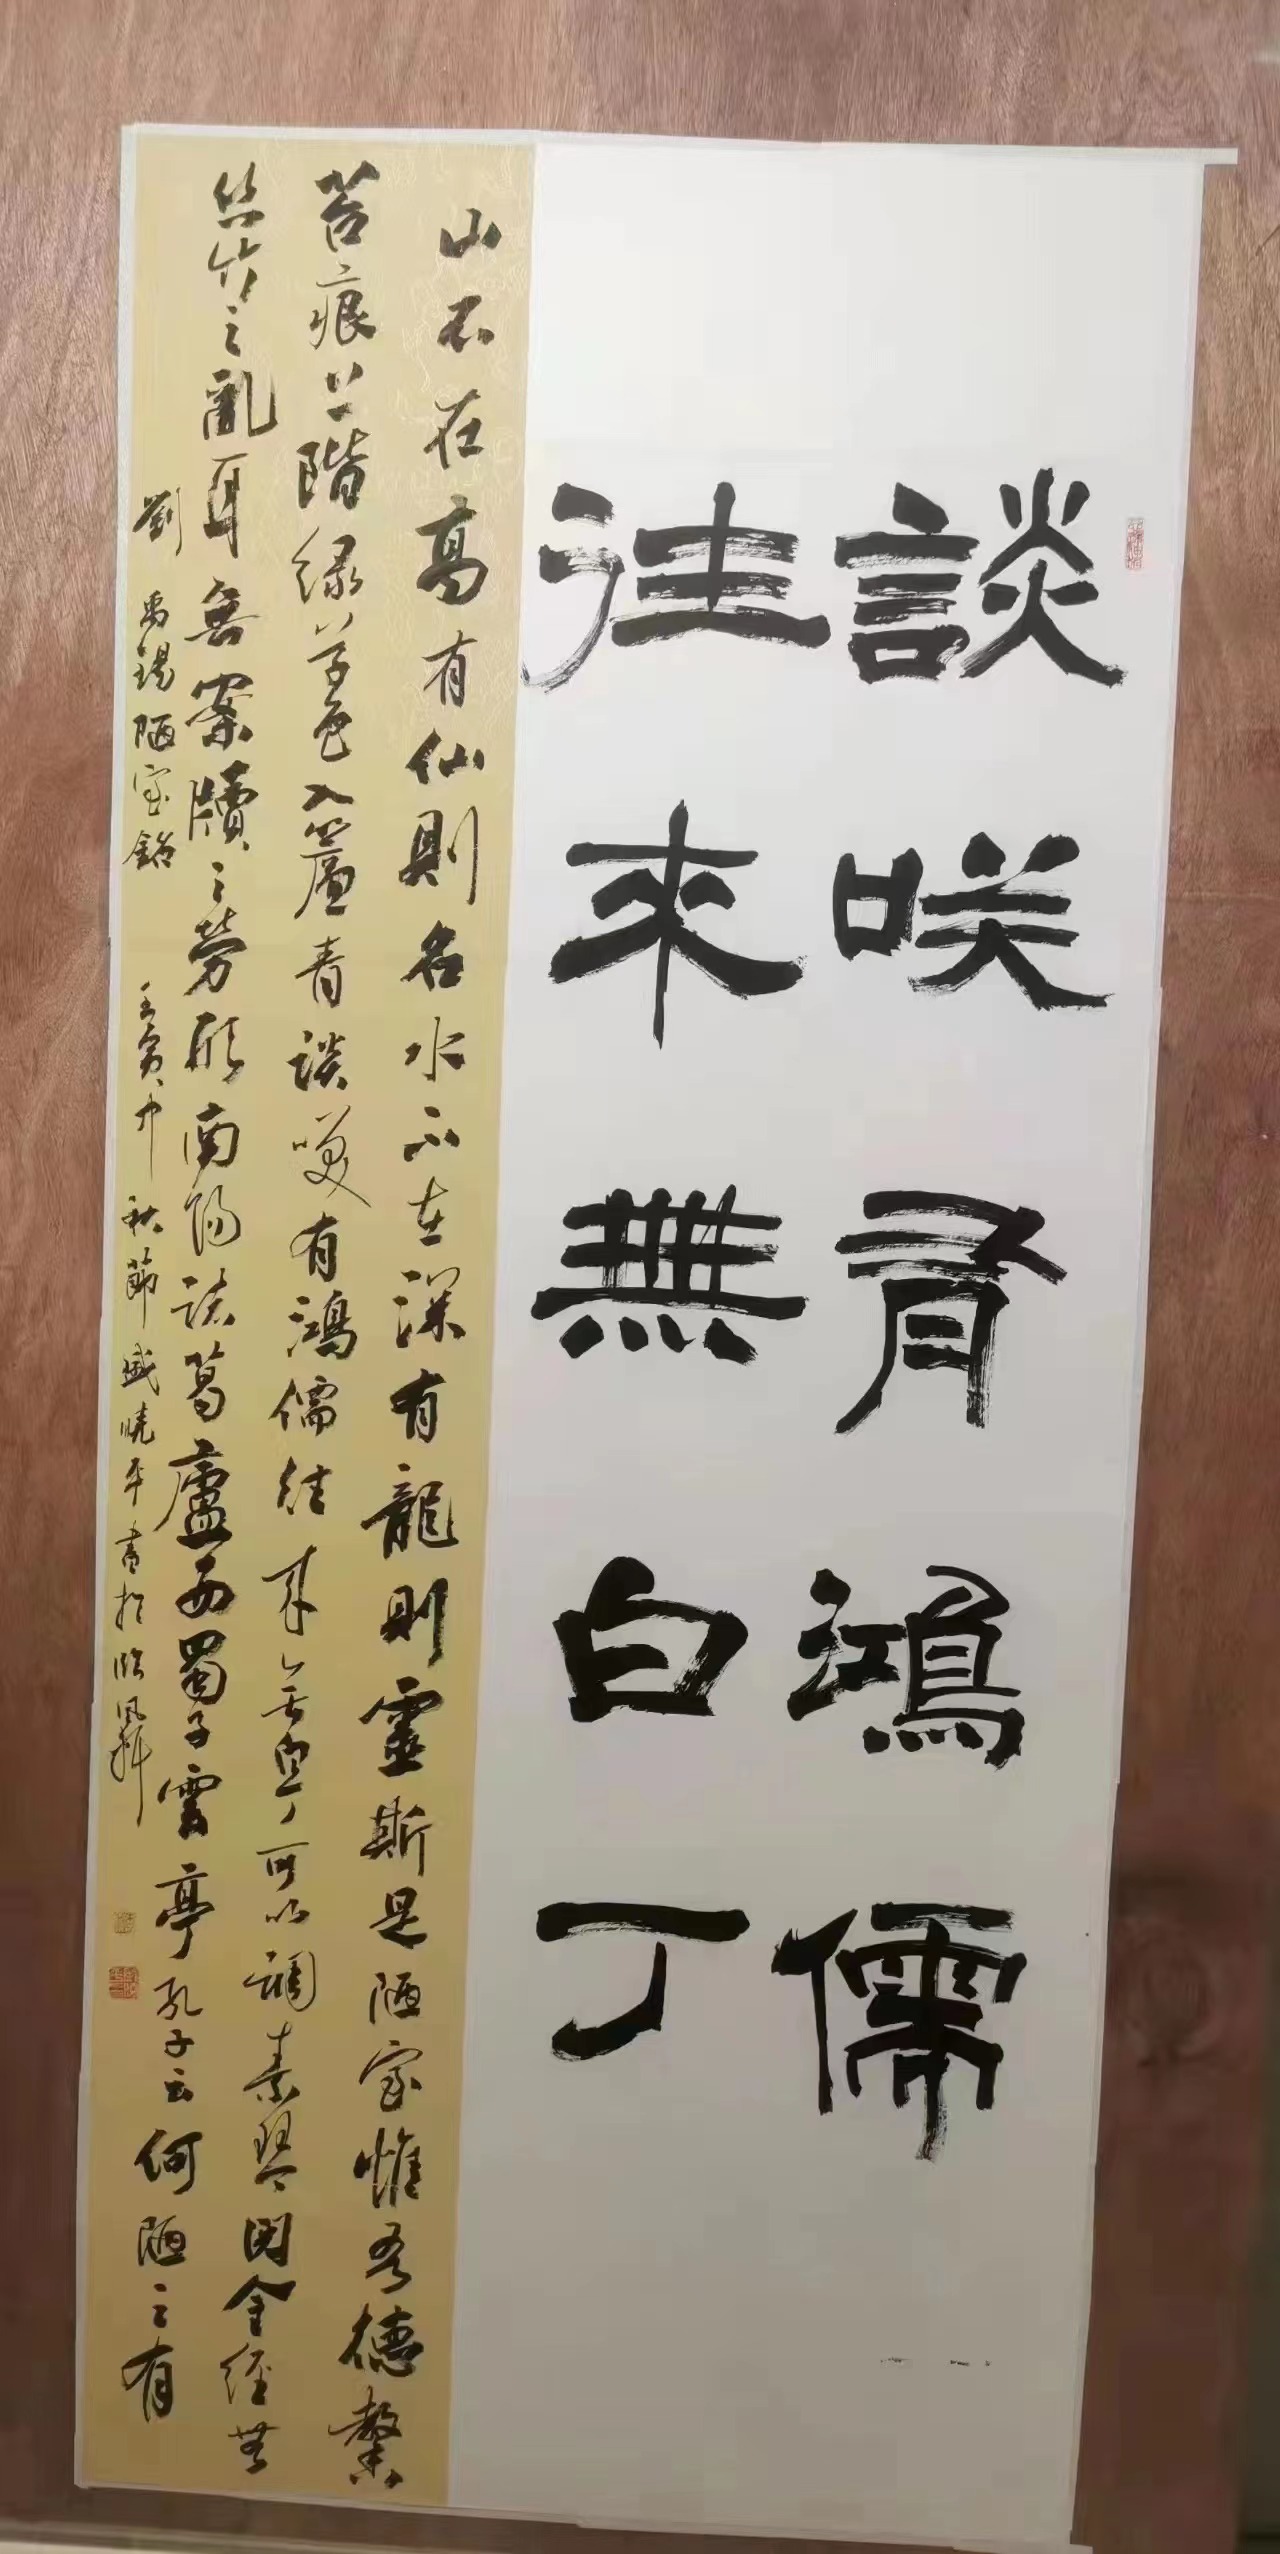 談咲有鴻儒
往來無白丁
山不在高有仙則名水不在深有龍則靈斯是陋室惟吾德馨
苔痕上階緑草色入簾青談笑有鴻儒往来無白丁可以調素琴閲金經無
丝竹之亂耳無案牘之勞形南陽諸葛廬西蜀子雲亭孔子云何陋之有
劉禹錫陋室銘 壬寅中秋節盛曉平書於臨風軒